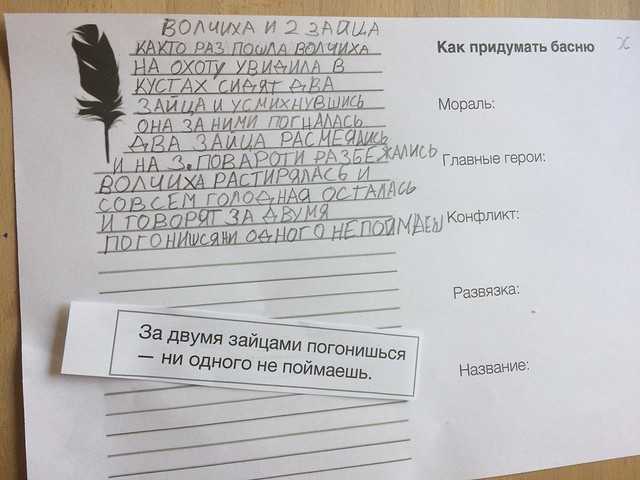 ВОЛЧИХА И 2 ЗАЙЦА
КАКТО РАЗ ПОШЛА ВОЛЧИХА
НА ОХОТУ УВИДИЛА В
КУСТАХ СИДЯТ ДВА
ЗАЙЦА И УСМИХНУВШИСЬ
ОНА ЗА НИМИ ПОГНАЛАСЬ
ДВА ЗАЙЦА РАСМЕЯЛИСЬ
И НА 3. ПОВАРОТИ РАЗБЕЖАЛИСЬ
ВОЛЧИХА РАСТИРЯЛАСЬ И
СОВСЕМ ГОЛОДНАЯ ОСТАЛАСЬ
И ГОВОРЯТ ЗА ДВУМЯ
ПОГОНИШСЯНИ ОДНОГО НЕ ПОЙМАЕШ
За двумя зайцами погонишься
— ни одного не поймаешь.
Как придумать басню
Мораль:
Главные герои:
Конфликт:
Развязка:
Название: